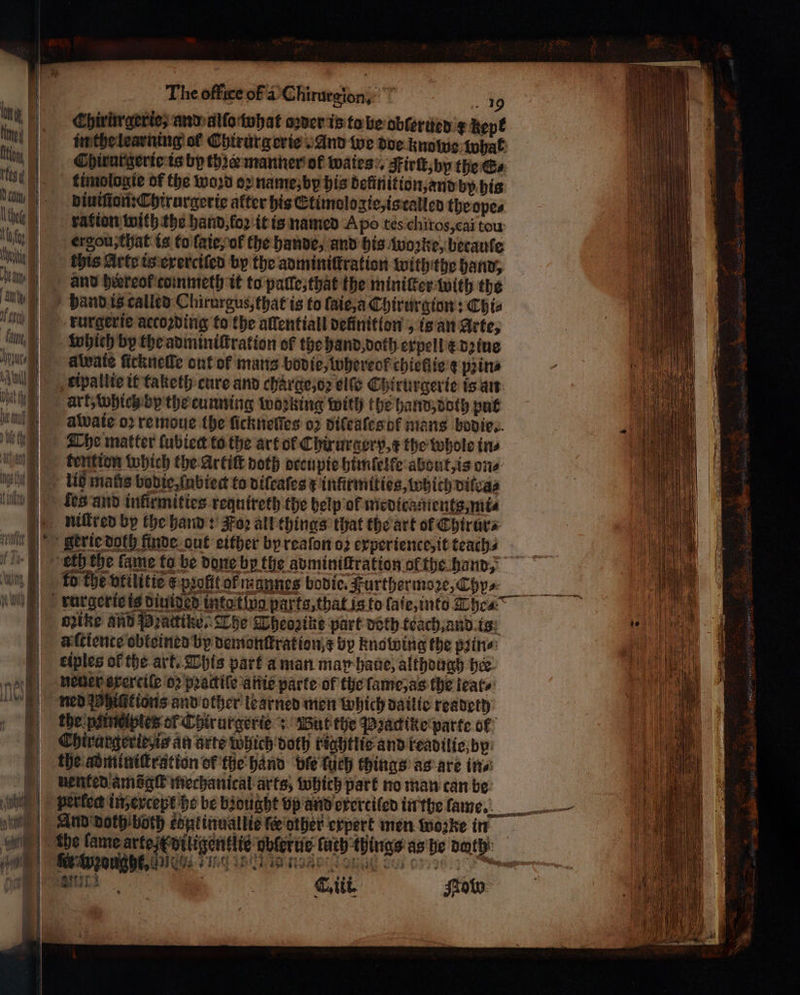 The office of a Chirurgion, 19
Chirurgerie, and also what order is to be obserued & kept
in the learning of Chirurgerie. And we doe knowe what
Chirurgerie is by thrée manner of waies. First, by the E-
timologie of the word or name, by his definition, and by his
diuision: Chirurgerie after his Etimologie, is called the ope-
ration with the hand, for it is named Apo tes chiros, cai tou
ergou, that is to saie, of the hande, and his worke, because
this Arte is exercised by the administration with the hand,
and héereof commeth it to passe, that the minister with the
hand is called Chirurgus, that is to saie, a Chirurgion: Chi-
rurgerie according to the assentiall definition, is an Arte,
which by the administration of the hand, doth expell & driue
awaie sicknesse out of mans bodie, whereof chieflie & prin-
cipallie it taketh cure and charge, or else Chirurgerie is an
art, which by the cunning working with the hand, doth put
awaie or remoue the sicknesses or diseases of mans bodie.
The matter subiect to the art of Chirurgery, & the whole in-
tention which the Artist doth occupie himselfe about, is on-
lie mans bodie, subiect to diseases & infirmities, which disea-
ses and infirmities requireth the help of medicaments, mi-
nistred by the hand: For all things that the art of Chirur-
gerie doth finde out either by reason or experience, it teach-
eth the same to be done by the administration of the hand,
to the vtilitie & profit of mannes bodie. Furthermore, Chy-
rurgerie is diuided into two parts, that is to saie, into The-
orike and Practike. The Theorike part doth teach, and is
a science obteined by demonstration, & by knowing the prin-
ciples of the art. This part a man may haue, although hée
neuer exercise or practise anie parte of the same, as the lear-
ned Phisitions and other learned men which dailie readeth
the principles of Chirurgerie: But the Practike parte of
Chirurgerie, is an arte which doth rightlie and readilie, by
the administration of the hand vse such things as are in-
uented amõgst mechanical arts, which part no man can be
perfect in, except he be brought vp and exercised in the same.
And doth both continuallie sée other expert men worke in
the same arte, & diligentlie obserue such things as he doth
sée wrought,
C.iii. Now